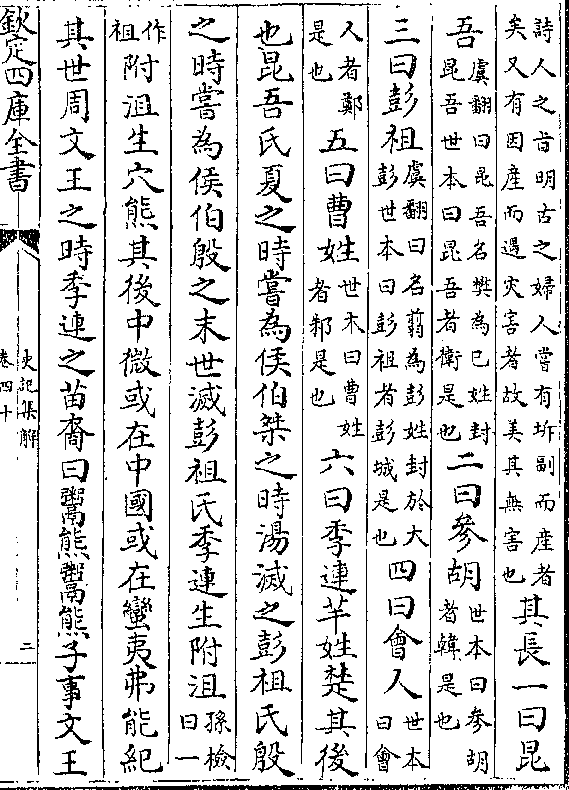 詩人之旨明古之婦人嘗有坼副而產者矣又有因產而遇災害者故美其無害也其長一曰昆
吾虞翻曰昆吾名樊為巳姓封昆吾世本曰昆吾者衛是也二曰參胡世本曰參胡者韓是也
三曰彭祖虞翻曰名翦為彭姓封於大彭世本曰彭祖者彭城是也四曰會人世本曰會
人者鄭是也五曰曹姓世木曰曹姓者邾是也六曰季連芊姓楚其後
也昆吾氏夏之時嘗為侯伯桀之時湯滅之彭祖氏殷
之時嘗為侯伯殷之末世滅彭祖氏季連生附沮孫檢曰一
作祖附沮生穴熊其後中微或在中國或在蠻夷弗能紀
其世周文王之時季連之苗裔曰鬻熊鬻熊子事文王
欽定四庫全書
史記集解
卷四十
二